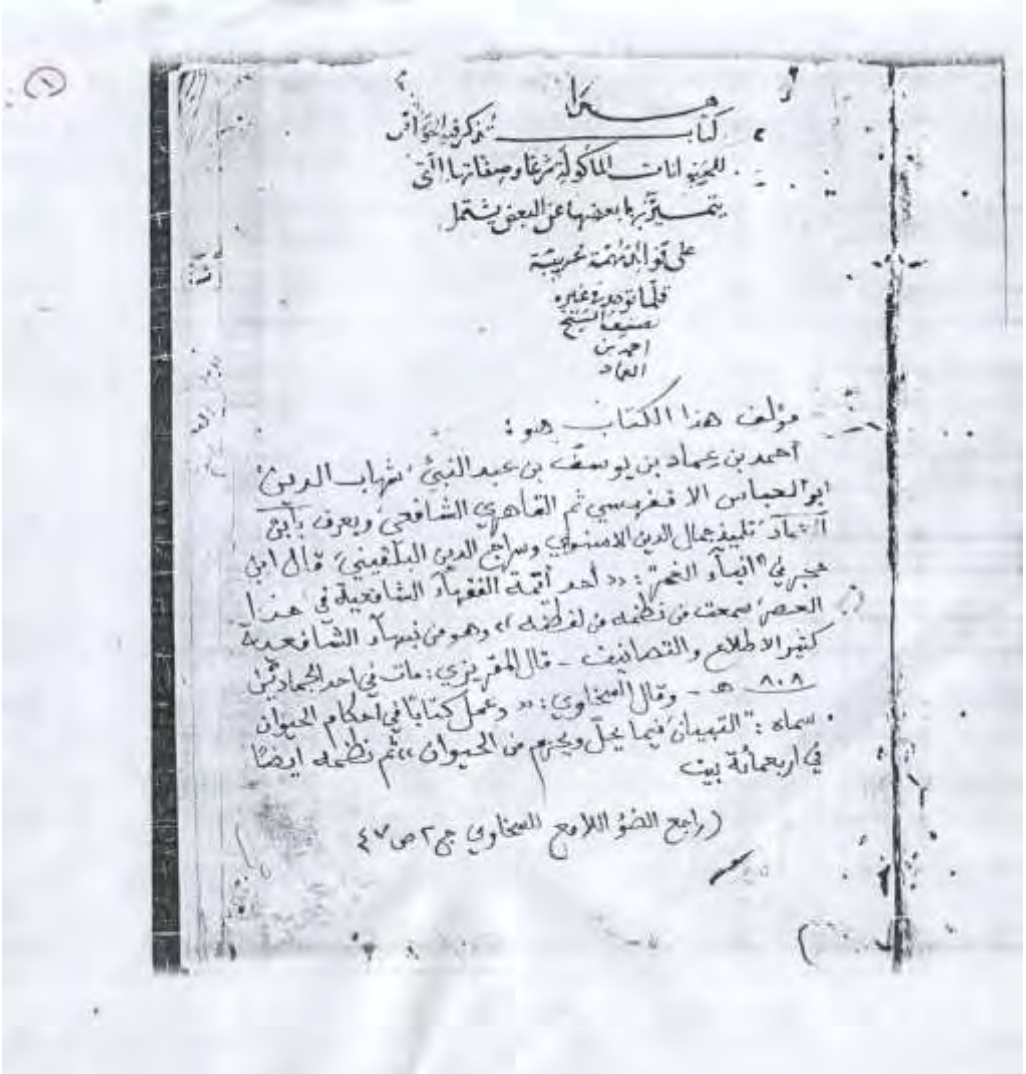 هذا
كتاب تذكر فيه
للحيوانات المأكولة شرعا وصفاتها التي
يتميز بها بعضها عن البعض يشتمل
على فوائد مهمة غريبة
قلما توجد في غيره
تصنيف الشيخ
احمد بن
العماد
مؤلف هذا الكتاب هو :
أحمد بن عماد بن يوسف بن عبد النبي، شهاب الدين
ابو العباس الاقفهسي ثم القاهري الشافعي ويعرف بابن
العماد، تلميذ جمال الدين الاسنوي وسراج الدين البلقيني، قال ابن
حجر في "انباء الغمر" : «أحد أئمة الفقهاء الشافعية في هذا
العصر، سمعت من نظمه من لفظه» وهو من نبهاء الشافعية
كثير الاطلاع والتصانيف - قال المقريزي : مات في احد الجمادين
٨٠٨ هـ - وقال السخاوي : «وعمل كتابا في احكام الحيوان
سماه : "التبيان فيما يحل ويحرم من الحيوان" ثم نظمه ايضا
في اربعمائة بيت
(راجع الضوء اللامع للسخاوي ج ٢ ص ٤٧